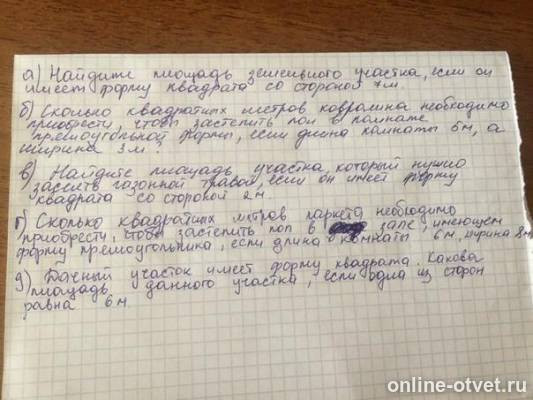 а) Найдите площадь земельного участка, если он
имеет форму квадрата со стороной 7м.
б) Сколько квадратных метров ковролина необходимо
приобрести, чтобы застелить пол в комнате
прямоугольной формы, если длина комнаты 5м, а
ширина 3м?
в) Найдите площадь участка, который нужно
засеять газонной травой, если он имеет форму
квадрата со стороной 2м.
г) Сколько квадратных метров паркета необходимо
приобрести, чтобы застелить пол в зале, имеющем
форму прямоугольника, если длина комнаты 6м, ширина 8м
д) Дачный участок имеет форму квадрата. Какова
площадь данного участка, если одна из сторон
равна 6м.
online-otvet.ru